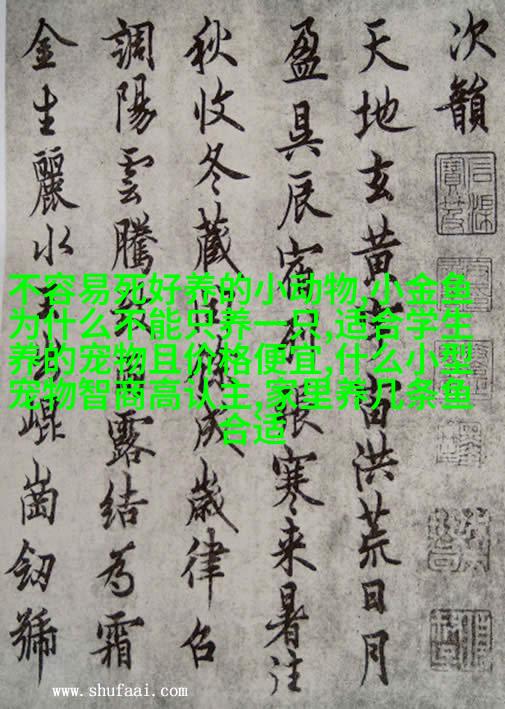 次韻
天地玄黃宇宙洪荒日月
盈昃辰宿列張寒來暑往
秋收冬藏閏餘成歲律召
調陽雲騰致雨露結為霜
金生麗水玉出崐崗劒號
不容易死好养的小动物,小金鱼
为什么不能只养一只,适合学生
养的宠物且价格便宜,什么小型
宠物智商高认主,家里养几条鱼
合适
www.shufaai.com